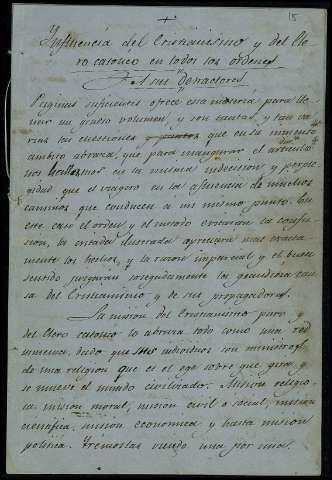 +
15
Influencia del Cristianismo y del Cle-
ro catolico en todos los ordenes
Y sus Detractores
Paginas suficientes ofrece esta materia para lle-
nar un grueso volumen, y son tantas y tan va-
rias las cuestiones que en su inmenso
ambito abraza, que para inaugurar el articulo
nos hallamos en la misma indecision y perple-
gidad que el viagero en la afluencia de muchos
caminos que conducen a un mismo punto. En
este caso el orden y el metodo evitaran la confu-
sion, la critica ilustrada apreciara mas exacta-
mente los hechos, y la razon imparcial y el buen
sentido juzgarán seguidamente la grandiosa cau-
sa del Cristianismo y de sus propagadores.
La mision del Cristianismo puro y
del Clero catolico lo abraza todo como una red
inmensa, dado que sus individuos son ministros
de una religion que es el ege sobre que gira y
se mueve el mundo civilizador. Mision religio-
sa, mision moral, mision civil o social, mision
cientifica, mision economica y hasta mision
politica. Irémoslas viendo una por una.